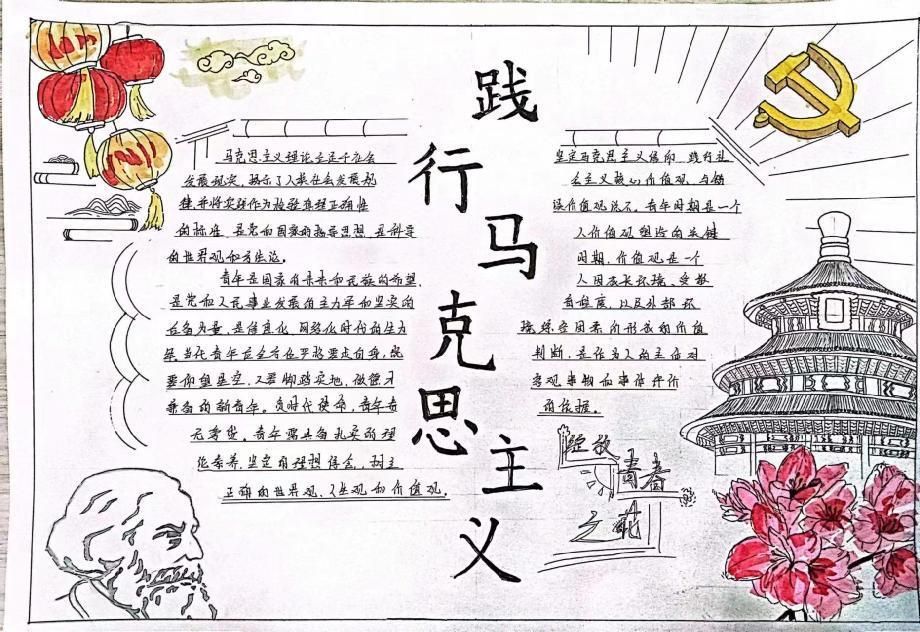 践行马克思主义
马克思主义理论立足于社会
发展现实，揭示了人类社会发展规
律，并将实践作为检验真理正确性
的标准，是党和国家的指导思想，是科学
的世界观和方法论。
青年是国家的未来和民族的希望，
是党和人民事业发展的主力军和坚实的
后备力量，是信息化、网络化时代的生力
军，当代青年应全方位严格要求自身，既
要仰望星空，又要脚踏实地，做德才
兼备的新青年。负时代使命，青年责
无旁贷。青年需具备扎实的理
论素养，坚定的理想信念，树立
正确的世界观、人生观和价值观。
坚定马克思主义信仰，践行社
会主义核心价值观，与错
误价值观说不。青年时期是一个
人价值观塑造的关键
时期，价值观是一个
人因成长环境、受教
育程度，以及外部环
境综合因素而形成的价值
判断，是作为人的主体对
客观事物和事件评价
的依据。
绽放
青春
之花